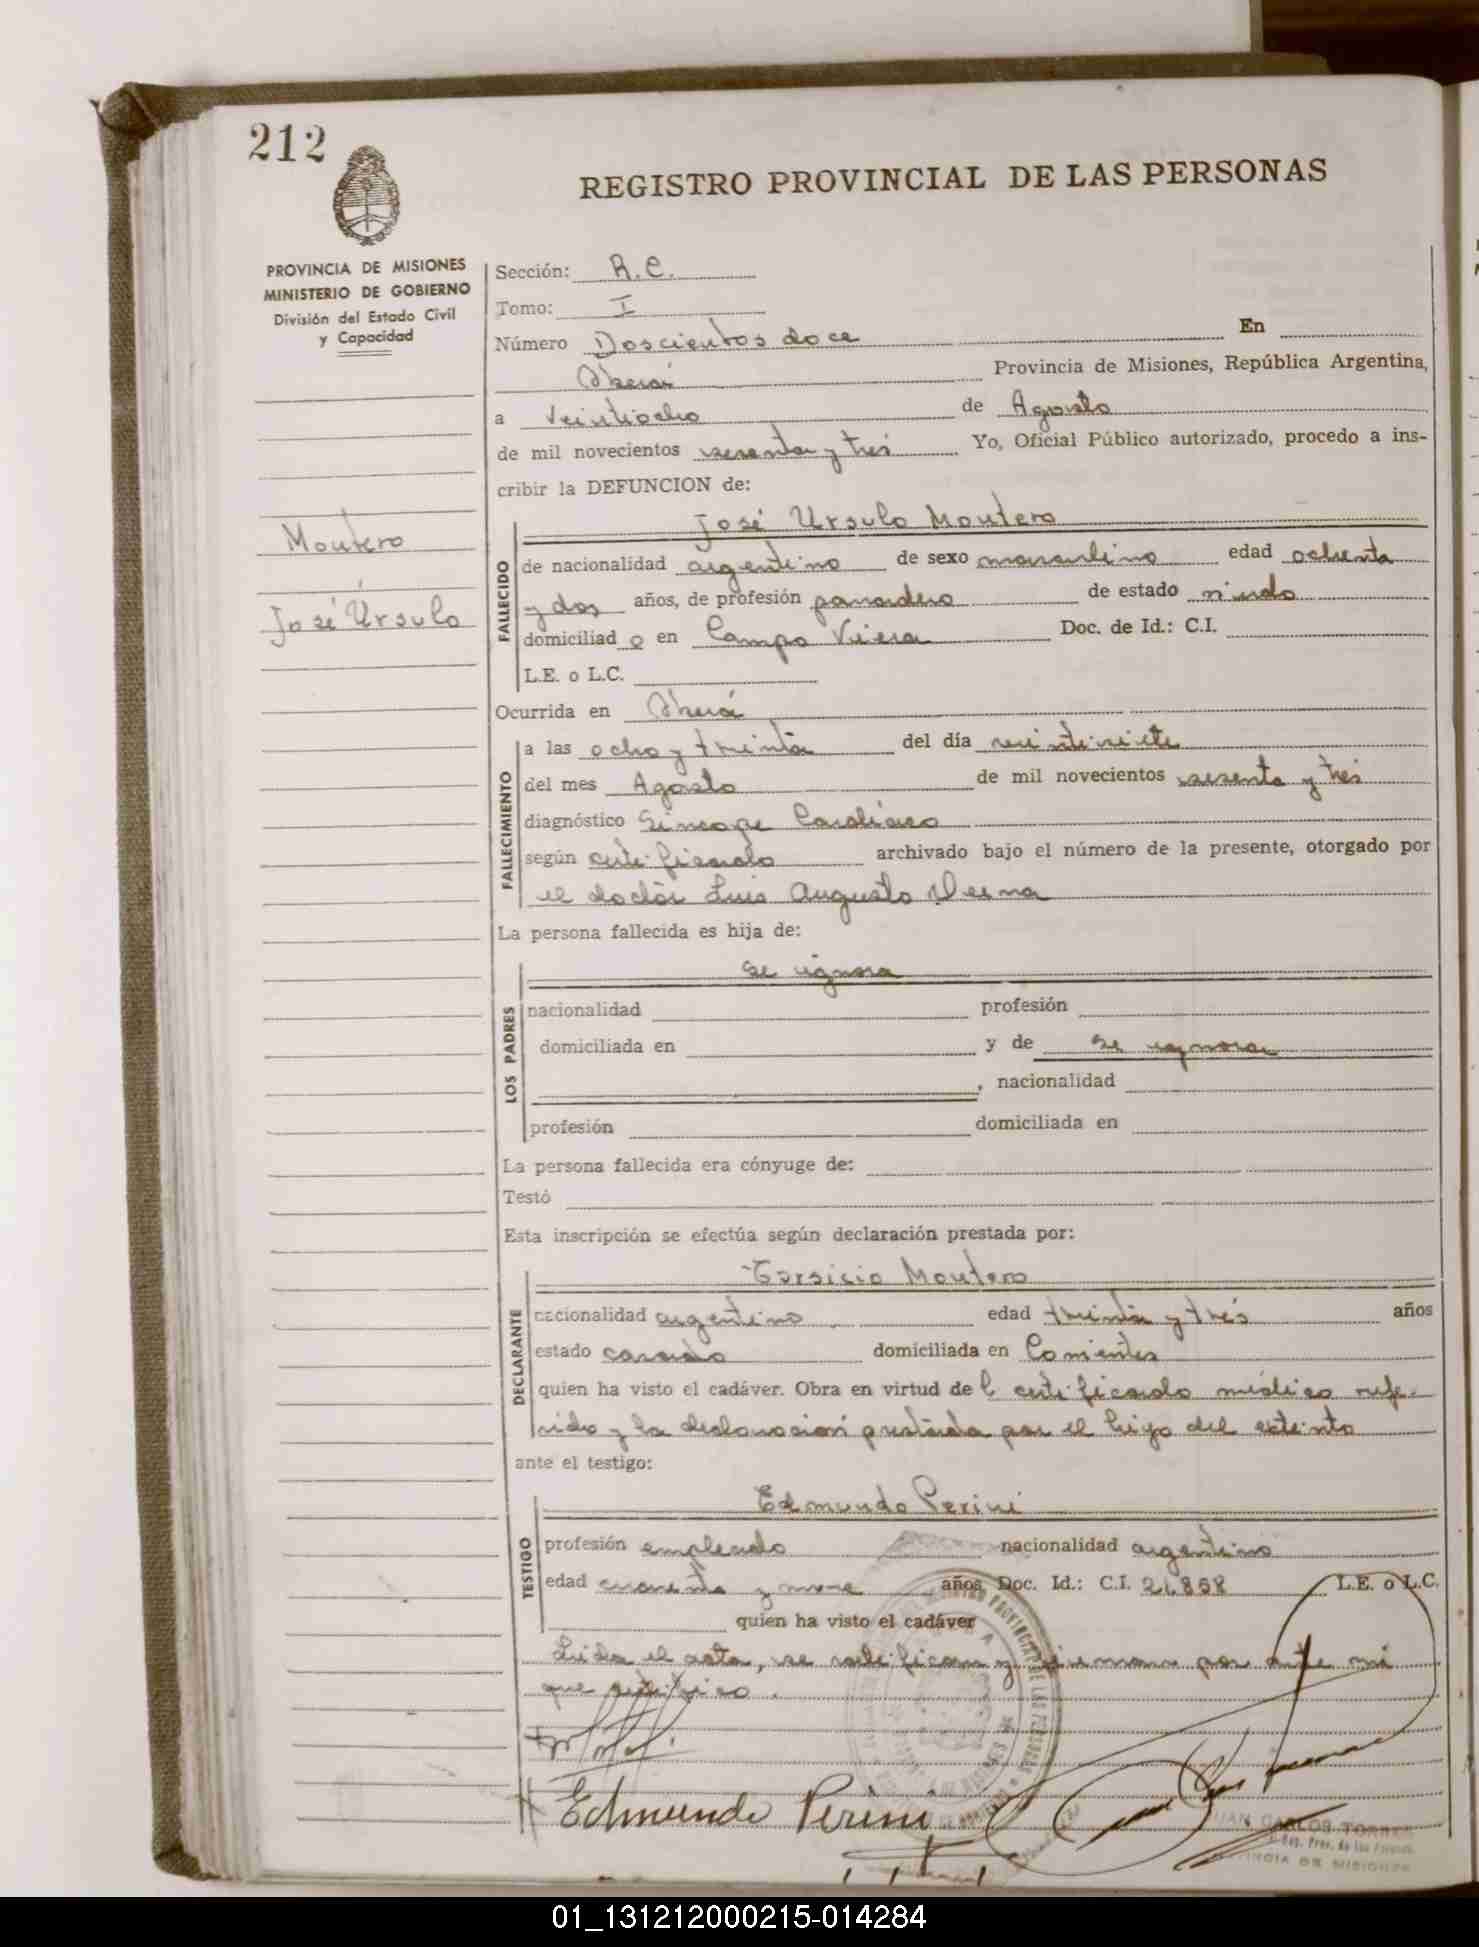 212
REGISTRO PROVINCIAL DE LAS PERSONAS
PROVINCIA DE MISIONES
MINISTERIO DE GOBIERNO
División del Estado Civil
y Capacidad
Sección: R.C.
Tomo: I
Número Doscientos doce En
Oberá Provincia de Misiones, República Argentina,
a Veintiocho de Agosto
de mil novecientos sesenta y tres Yo, Oficial Público autorizado, procedo a ins-
cribir la DEFUNCION de:
Montero
José Úrsulo
FALLECIDO
José Ursulo Montero
de nacionalidad argentino de sexo masculino edad ochenta
y dos años, de profesión panadero de estado viudo
domiciliad o en Campo Viera Doc. de Id.: C.I.
L.E. o L.C.
Ocurrida en Oberá
FALLECIMIENTO
a las ocho y treinta del día veintisiete
del mes Agosto de mil novecientos sesenta y tres
diagnóstico Síncope Cardíaco
según certificado archivado bajo el número de la presente, otorgado por
el doctor Luis Augusto
La persona fallecida es hija de:
LOS PADRES
se ignora
nacionalidad profesión
domiciliada en y de se ignora
, nacionalidad
profesión domiciliada en
La persona fallecida era cónyuge de:
Testó
Esta inscripción se efectúa según declaración prestada por:
DECLARANTE
Tarsicio Montero
nacionalidad argentino edad treinta y trés años
estado casado domiciliada en Corrientes
quien ha visto el cadáver. Obra en virtud de l certificado médico refe-
rido y la declaración prestada por el hijo del extinto
ante el testigo:
TESTIGO
Edmundo Perini
profesión empleado nacionalidad argentino
edad cuarenta y nueve años Doc. Id.: C.I. 21.858 L.E. o L.C.
quien ha visto el cadáver
Leida el acta, se ratifican y firman por ante mi
que certifico.
Edmundo Perini
JUAN CARLOS TORRES
PROVINCIA DE MISIONES
01_131212000215-014284